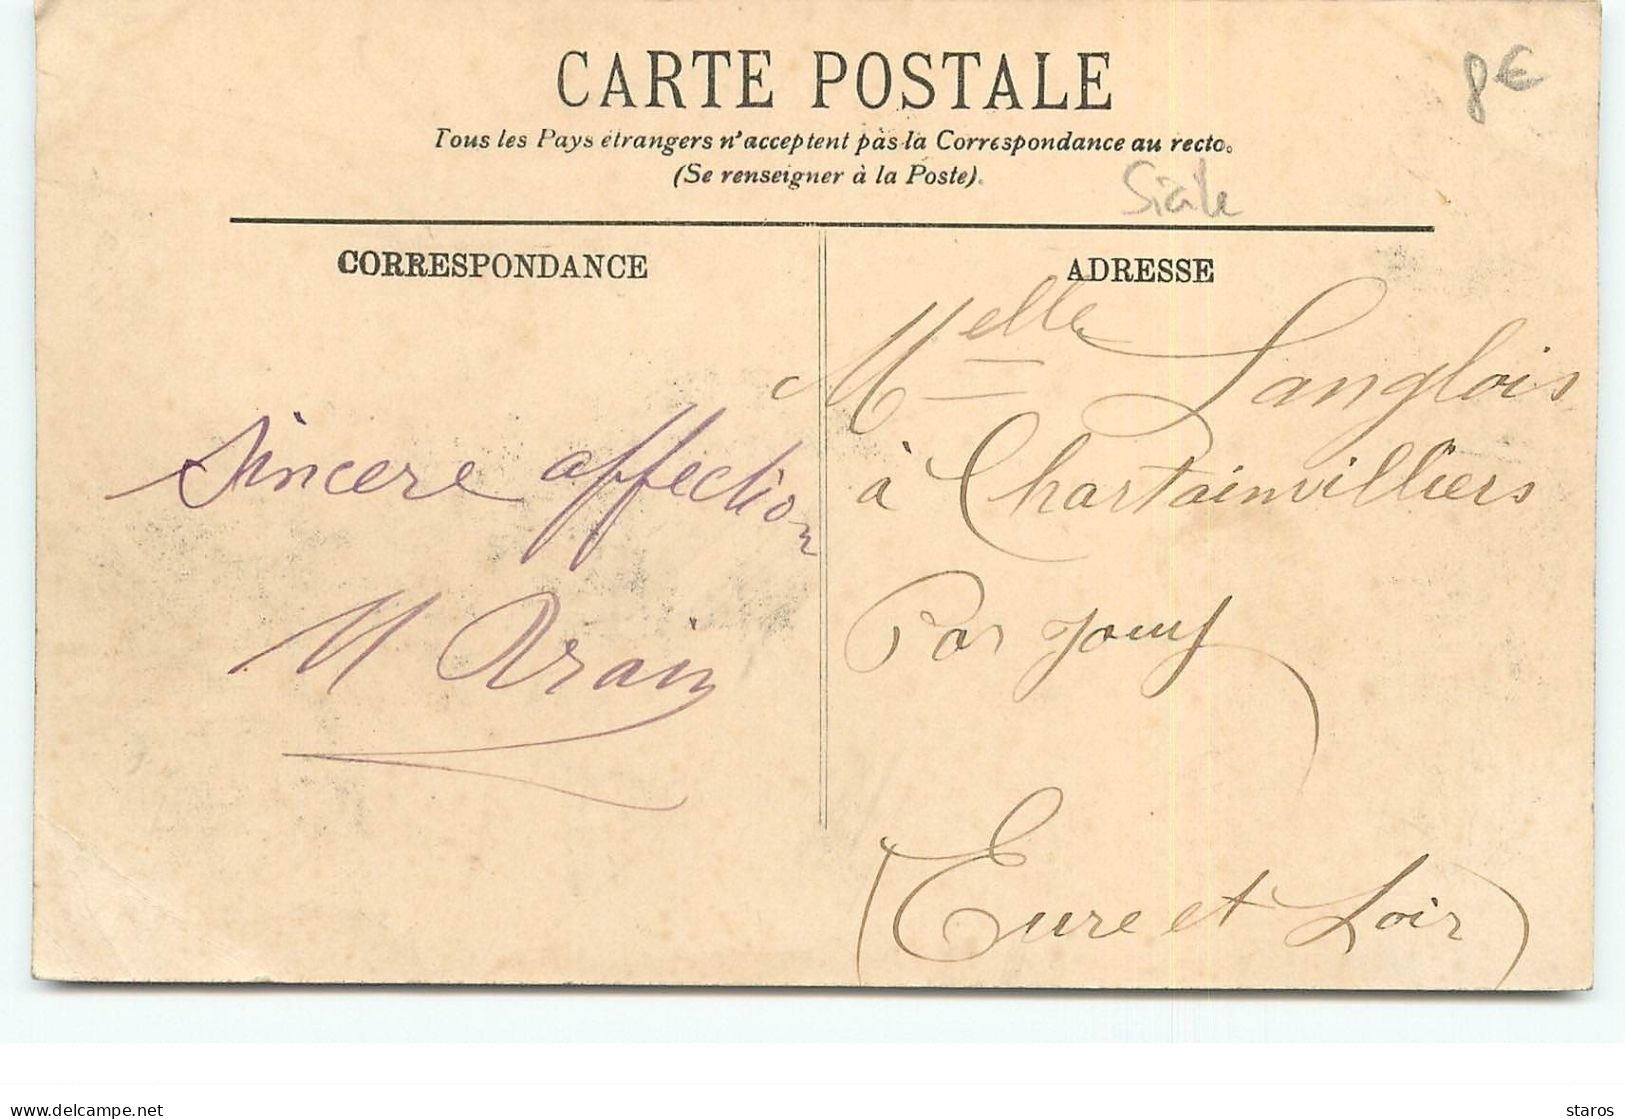 CARTE POSTALE
8€
Tous les Pays étrangers n'acceptent pas la Correspondance au recto.
(Se renseigner à la Poste).
Sicile
CORRESPONDANCE
ADRESSE
Sincere affection
M
Melle Langlois
à Chartainvilliers
Par Jouy
(Eure et Loir)
delcampe.net
staros